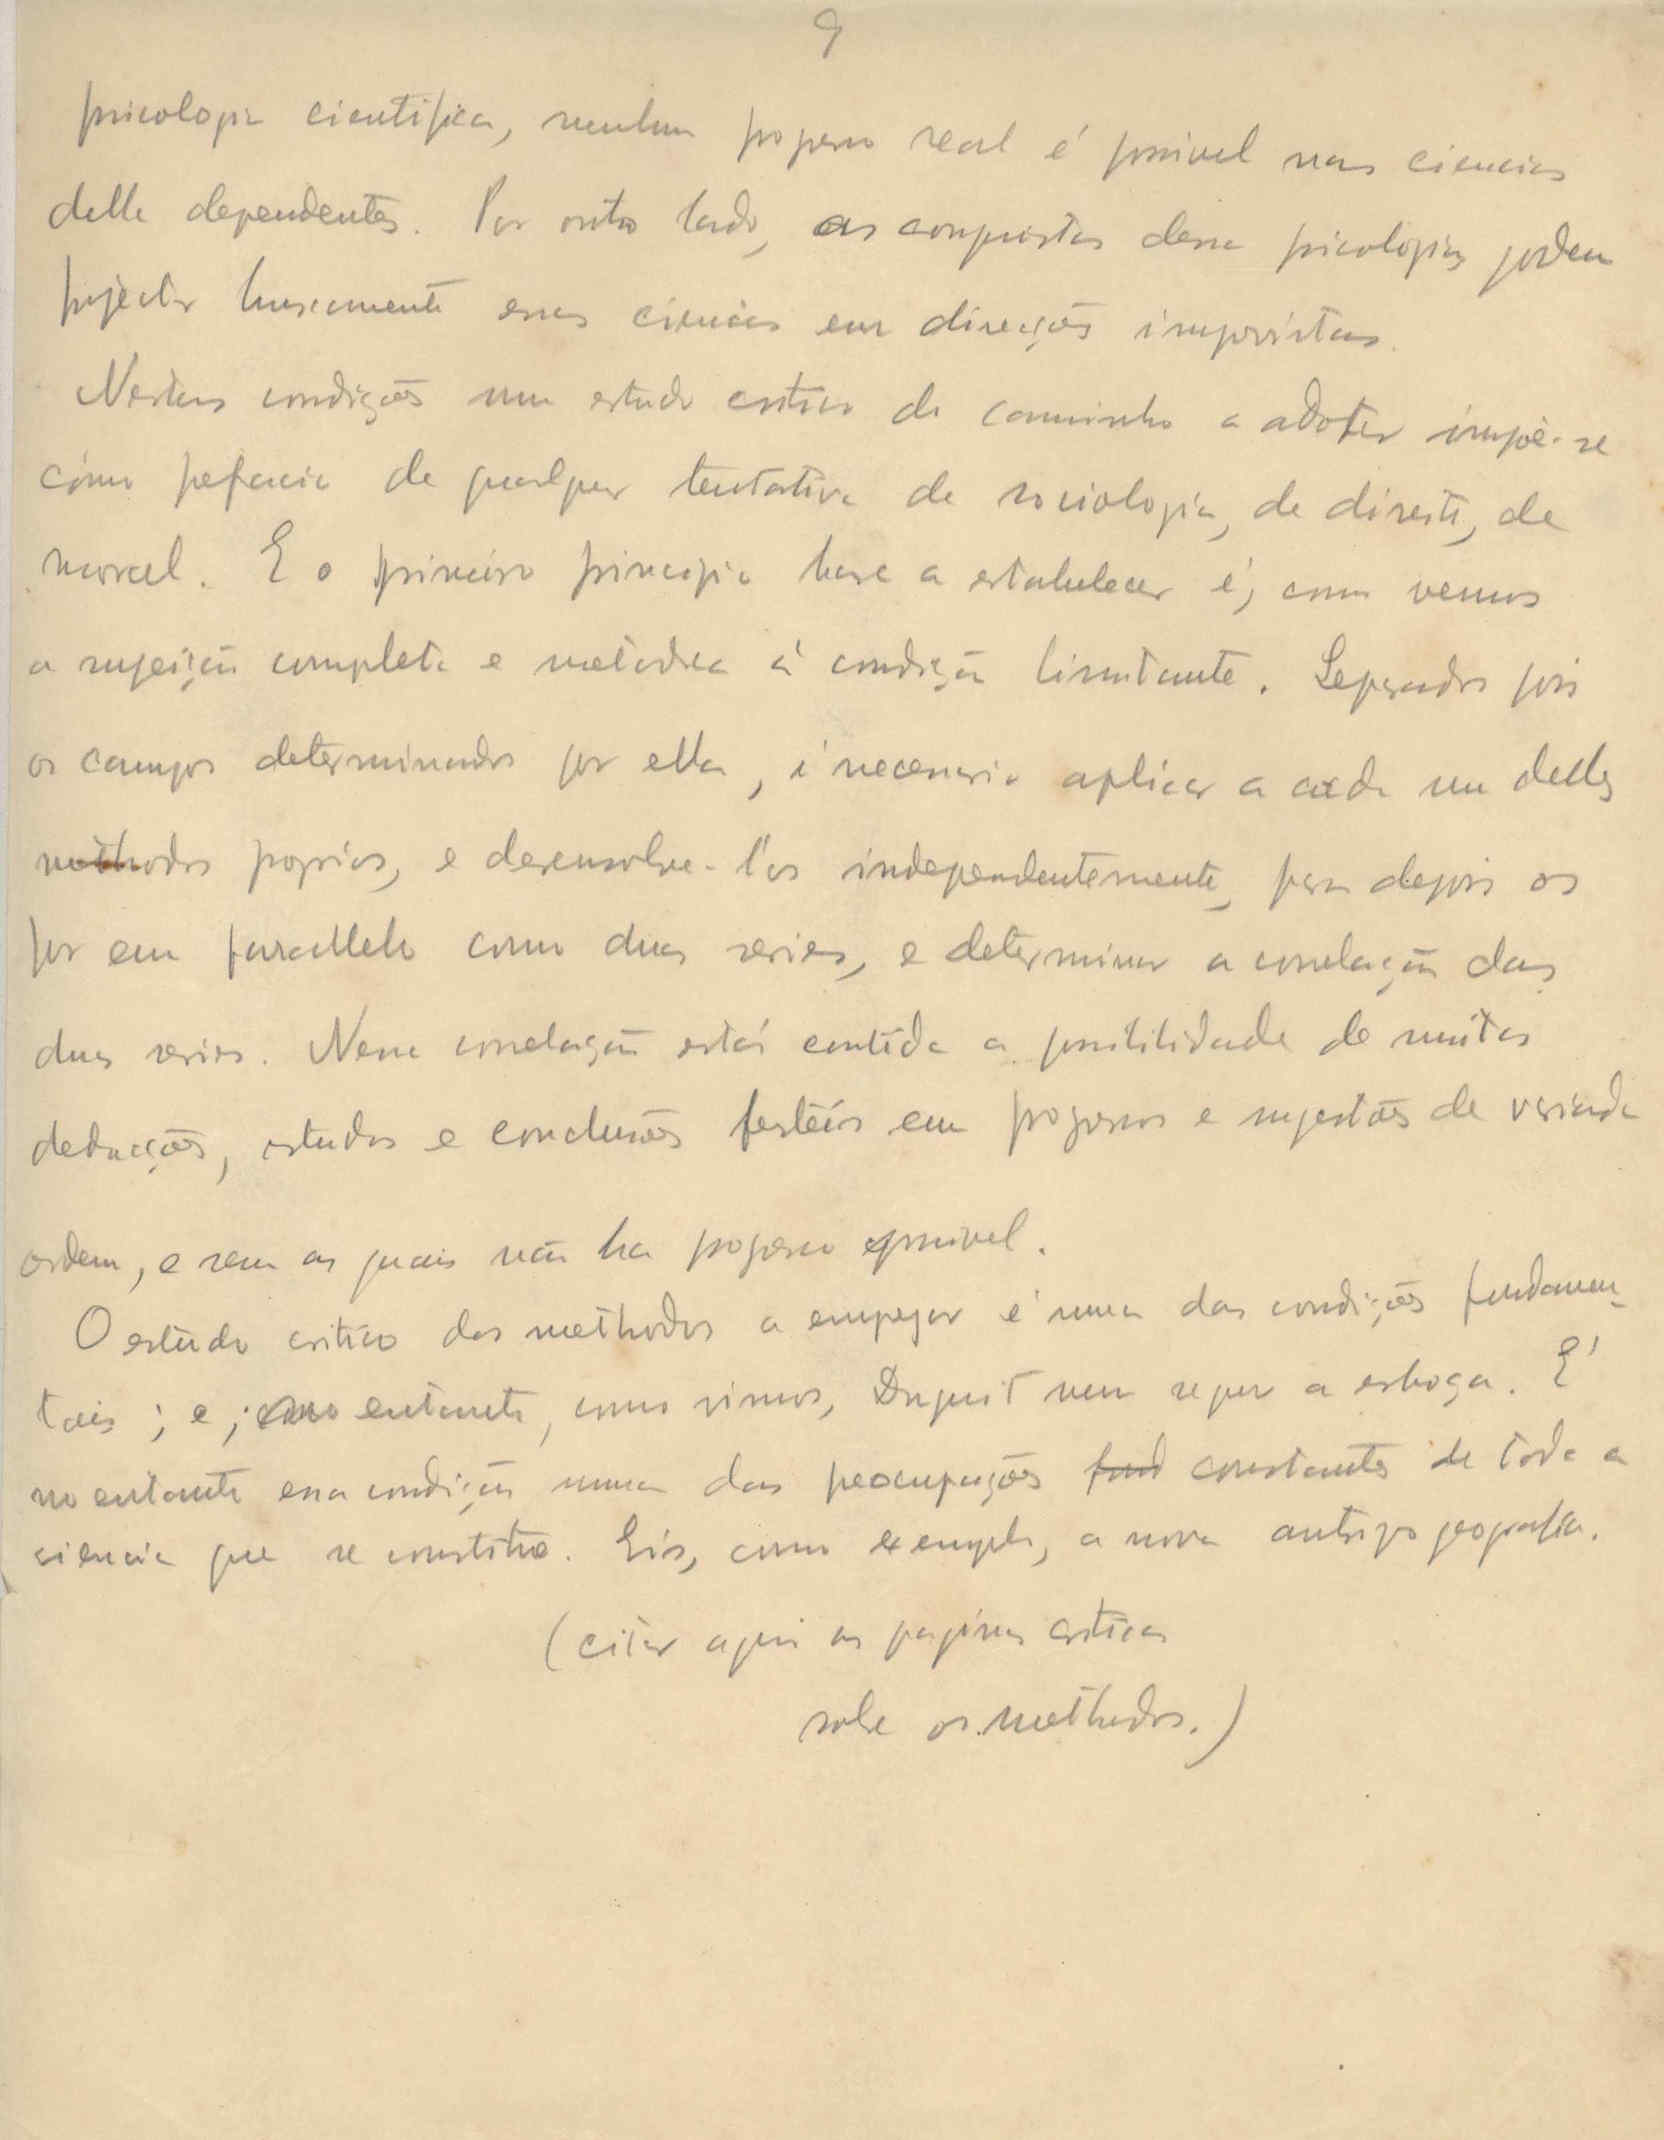 9
psicologia cientifica, nenhum progresso real é possivel nas ciencias
della dependentes. Por outro lado, as conquistas dessa psicologia podem
projectar bruscamente essas ciencias em direcções imprevistas.
Nestas condições um estudo critico do caminho a adoptar impõe-se
como prefacio de qualquer tentativa de sociologia, de direito, de
moral. E o primeiro principio base a estabelecer é, como vemos
a sujeição completa e metodica á condição limitante. Separados pois
os campos determinados por ella, é necessario aplicar a cada um delles
methodos proprios, e desenvolve-l'os independentemente, para depois os
pôr em parallelo como duas series, e determinar a correlação das
duas series. Nessa correlação está contida a possibilidade de muitas
deducções, estudos e conclusões ferteis em progressos e sugestões de variada
ordem, e sem as quais não ha progresso possivel.
O estudo critico dos methodos a empregar é uma das condições fundamen-
tais; e, no entanto, como vimos, Duguit nem sequer a esboça. E'
no entanto essa condição uma das preocupações fund constantes de toda a
sciencia que se constitue. Eis, como exemplo, a nova antropogeografia.
(citar aqui as paginas criticas
sobre os methodos.)